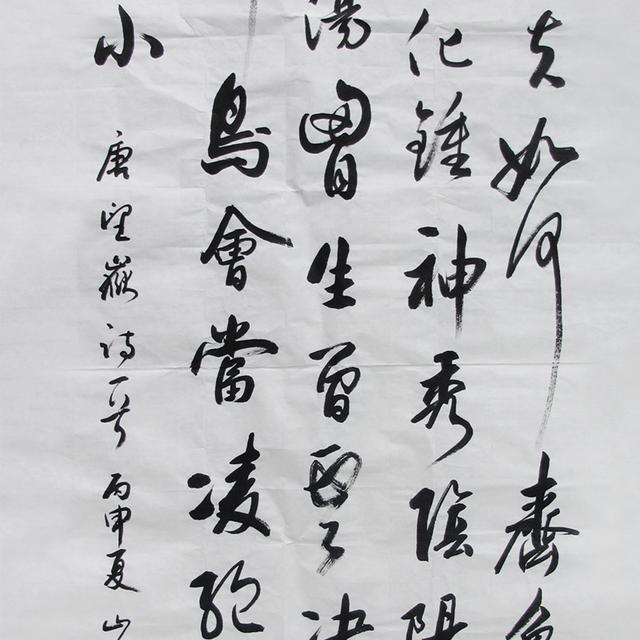 夫如何齊魯
化鍾神秀陰陽
蕩胷生曾雲決
鳥會當凌絕
小
唐望嶽詩一首 丙申夏 山